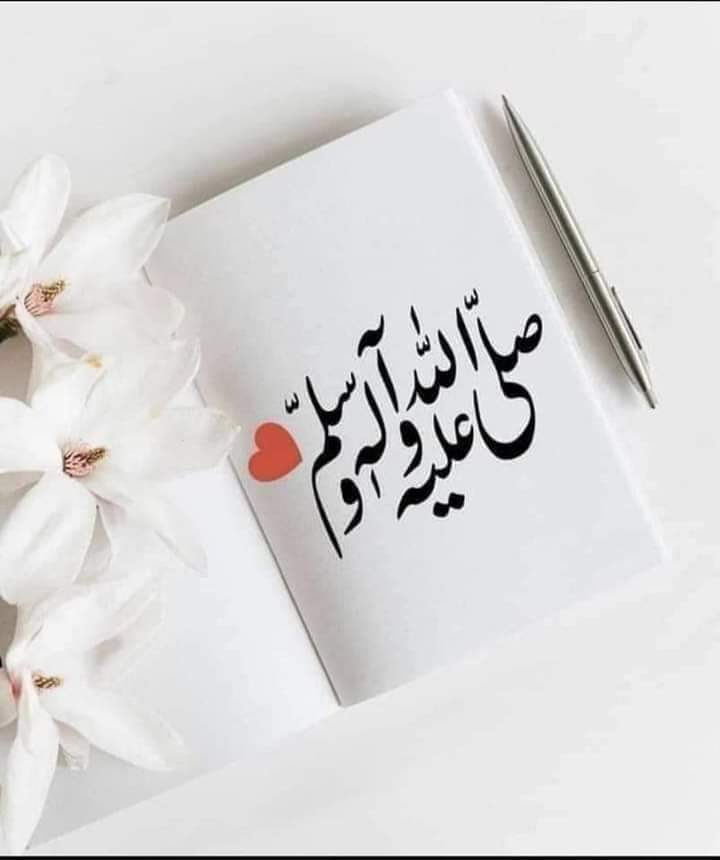 صلّى اللّٰه عليه وآلهٖ وسلّم